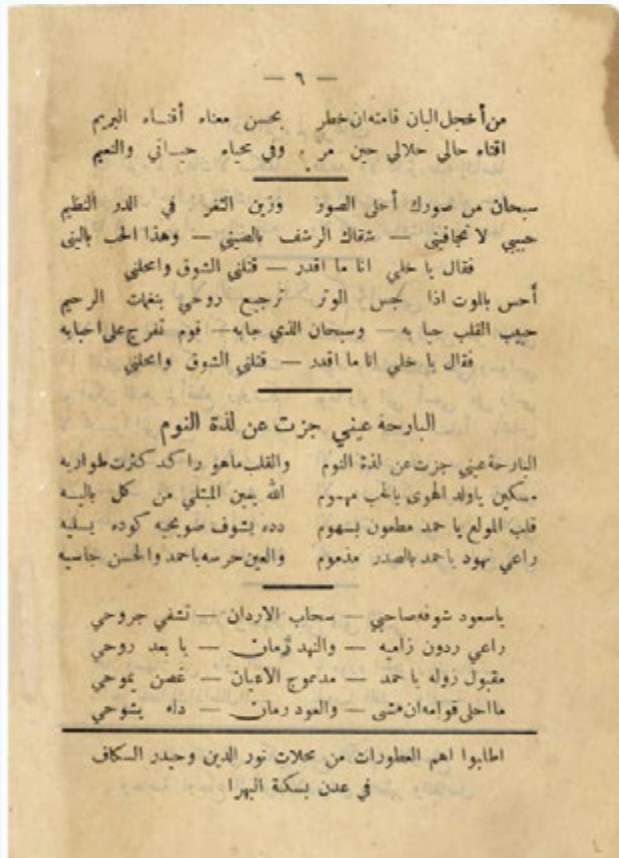 — ٦ —
من أخجل البان قامته ان خطر بحسن معناه أفناء البريم
افناه حالي حلالي حين مر وفي محياه حياتي والنعيم
سبحان من صورك أحلى الصور وزين الثغر في الدر النظيم
حبيبي لا تجافيني — شفاك الرشف بالصيني — وهذا الحب باليني
فقال يا خلي انا ما اقدر — قتلني الشوق وامحلني
أحس بالموت اذا نجس الوتر ترجيع روحي بنغمات الرحيم
حبيب القلب حيا به — وسبحان الذي جابه — قوم تفرج على احبابه
فقال يا خلي انا ما اقدر — قتلني الشوق وامحلني
البارحة عيني جزت عن لذة النوم
البارحة عيني جزت عن لذة النوم والقلب ماهو راكد كثرت طواريه
مسكين ياولد الهوى بالحب مهموم الله يعين المبتلي من كل باليه
قلب المولع يا حمد مطعون بسهوم وده يشوف صويحبه كوده يسليه
راعي نهود ياحمد بالصدر مذموم والعين حرسه ياحمد والحسن جاسيه
ياسعود شوفه صاحبي — سحاب الاردان — تشفي جروحي
راعي ردون زاميه — والنهد رمان — يا بعد روحي
مقبول زوله يا حمد — مدموج الاعيان — غصن يموحي
ما احلى قوامه ان مشى — والعود رمان — دله يشوحي
اطلبوا اهم العطورات من محلات نور الدين وحيدر السكاف
في عدن بسكة البهرا